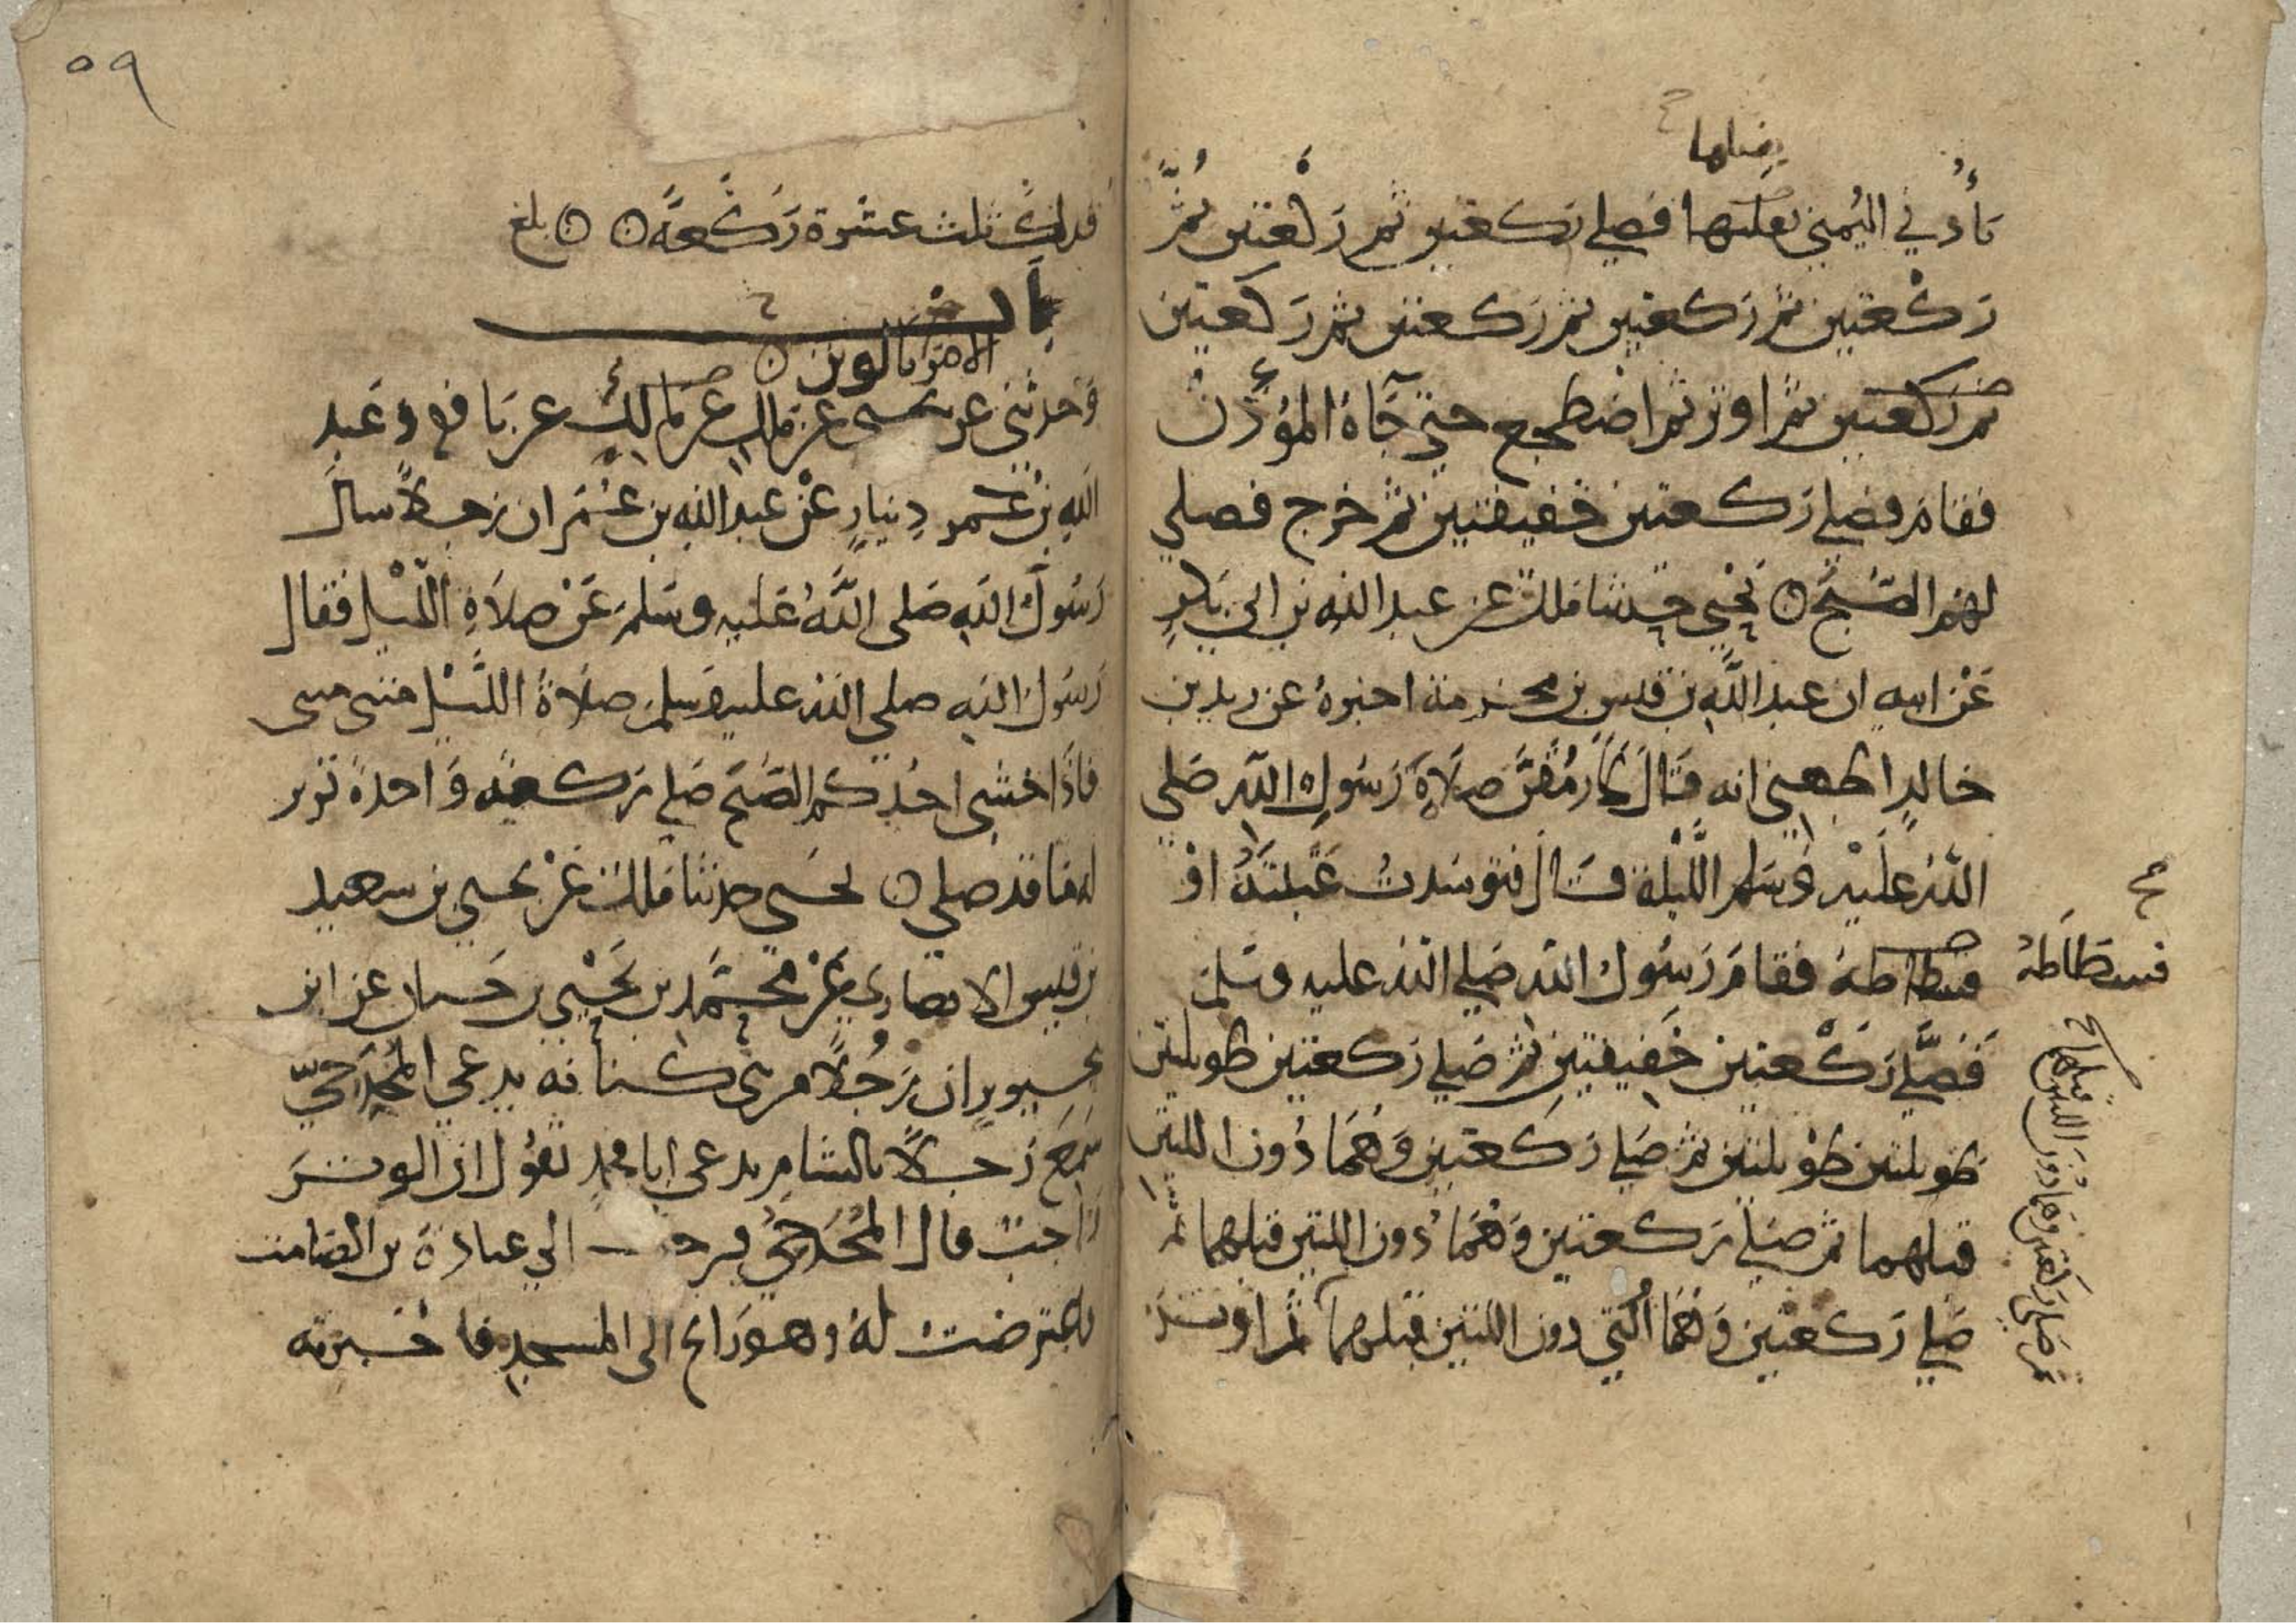 يفتلها
بأذني اليمنى يفتلها فصلى ركعتين ثم ركعتين ثم
ركعتين ثم ركعتين ثم ركعتين ثم ركعتين
ثم ركعتين ثم اوتر ثم اضطجع حتى جاه المؤذن
فقام فصلى ركعتين خفيفتين ثم خرج فصلى
لهم الصبح يحيى حدثنا ملك عن عبد الله بن ابي بكر
عن ابيه ان عبد الله بن قيس بن مخرمة اخبره عن زيد بن
خالد الجهني انه قال لارمقن صلاة رسول الله صلى
الله عليه وسلم الليلة قال فتوسدت عتبته او
فسطاطه فقام رسول الله صلى الله عليه وسلم
فصلى ركعتين خفيفتين ثم صلى ركعتين طويلتين
طويلتين طويلتين ثم صلى ركعتين وهما دون اللتين
قبلهما ثم صلى ركعتين وهما دون اللتين قبلهما ثم
صلى ركعتين وهما دون اللتين قبلهما ثم اوتر
فسطاطه
ثم صلى ركعتين وهما دون اللتين قبلهما
٥٩
فذلك ثلث عشرة ركعة بلغ
باب
الامر بالوتر
وحدثني عن يحيى عن ملك عن نافع وعبد
الله بن دينار عن عبد الله بن عمر ان رجلا سال
رسول الله صلى الله عليه وسلم عن صلاة الليل فقال
رسول الله صلى الله عليه وسلم صلاة الليل مثنى مثنى
فاذا خشي احدكم الصبح صلى ركعة واحدة توتر
له ما قد صلى يحيى حدثنا ملك عن يحيى بن سعيد
بن قيس الانصاري عن محمد بن يحيى بن حبان عن ابن
محيريز ان رجلا من بني كنانة يدعى المخدجي
سمع رجلا بالشام يدعى ابا محمد يقول ان الوتر
واجب قال المخدجي فرحت الى عبادة بن الصامت
فاعترضت له وهو رايح الى المسجد فاخبرته